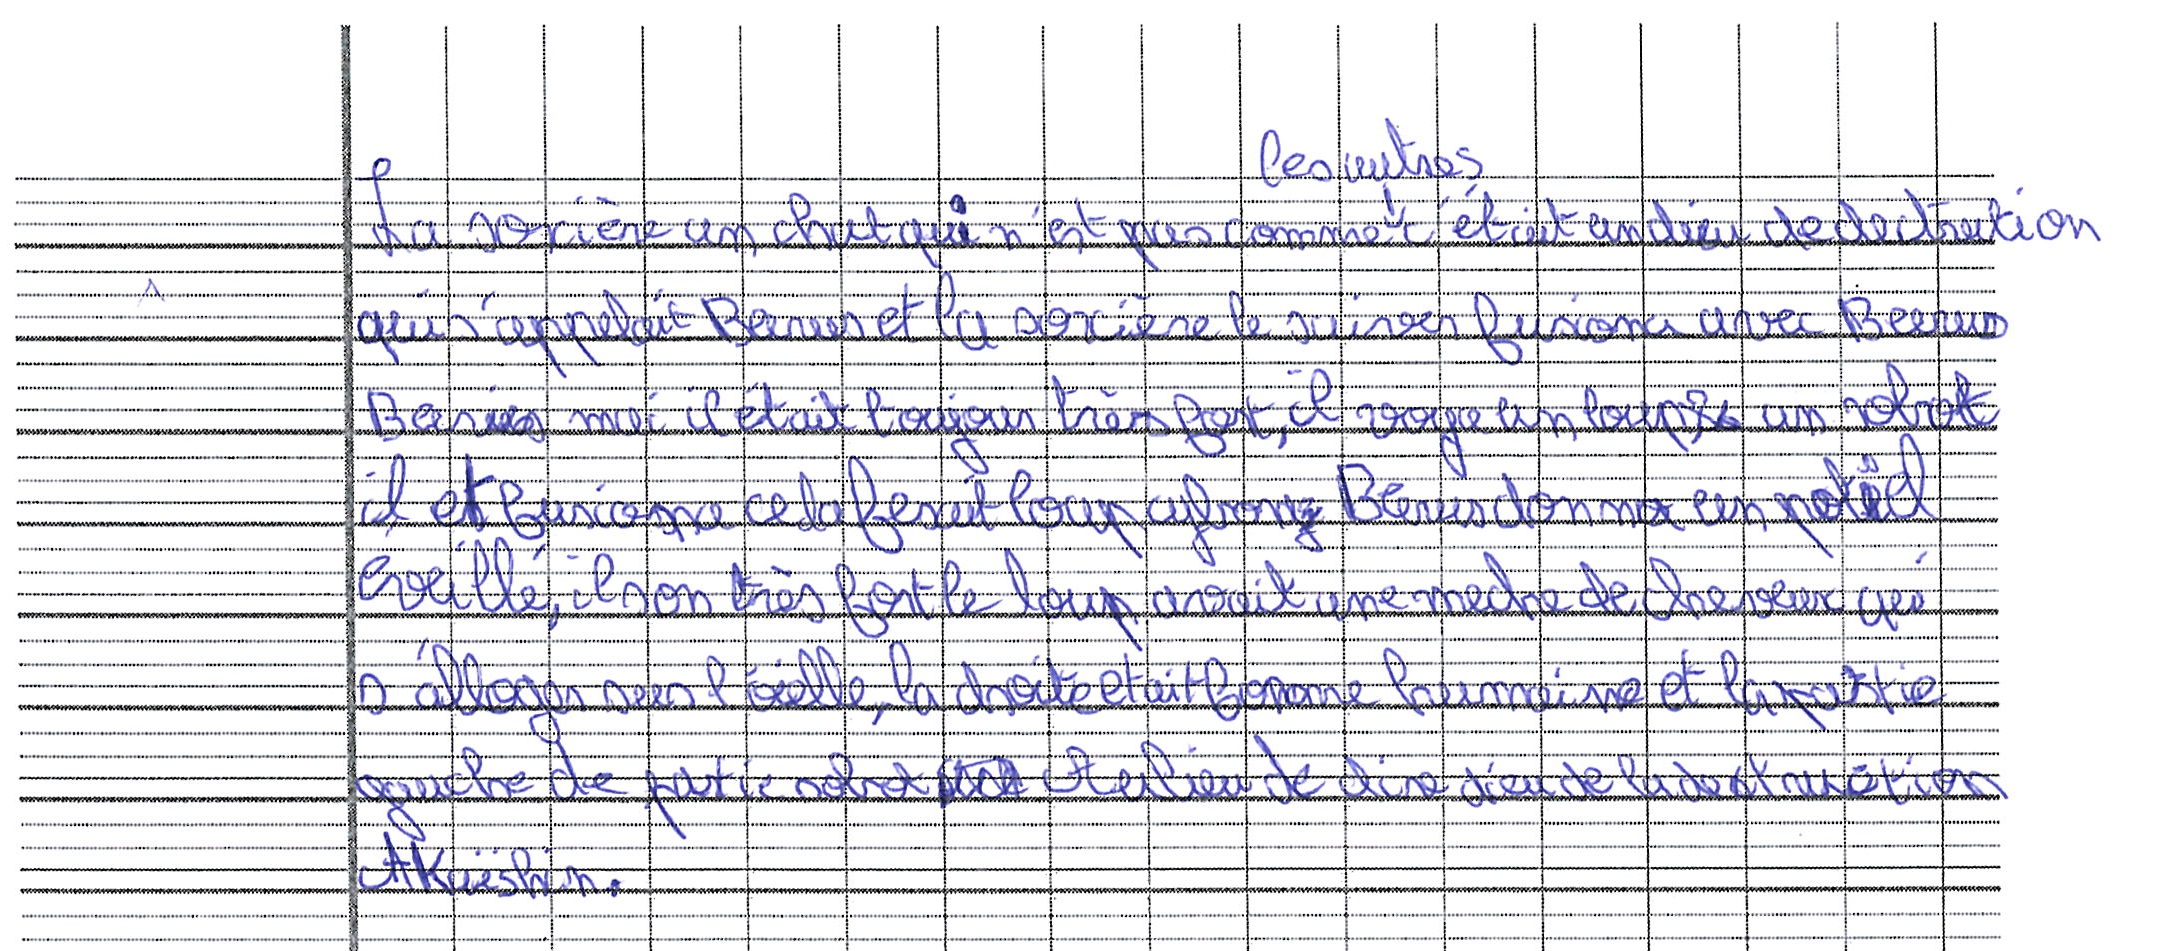 les autres
La sorcière un chat qui n'est pas comme c'était un dieu de dectrution
qui s'appelait Beerus et la sorcière le suiver fusiona avec Beerus
Beerus moi il était toujour très fort, il voye un loup un robot
il et fusionne cela ferait loup Bérus donna un
éveillé, il son très fort le loup avait une meche de cheveux qui
s'alloger sur l'oeille, la droite etait forme humaine et la partie
gauche de partie robot Au lieu de dire dieu de la destruction